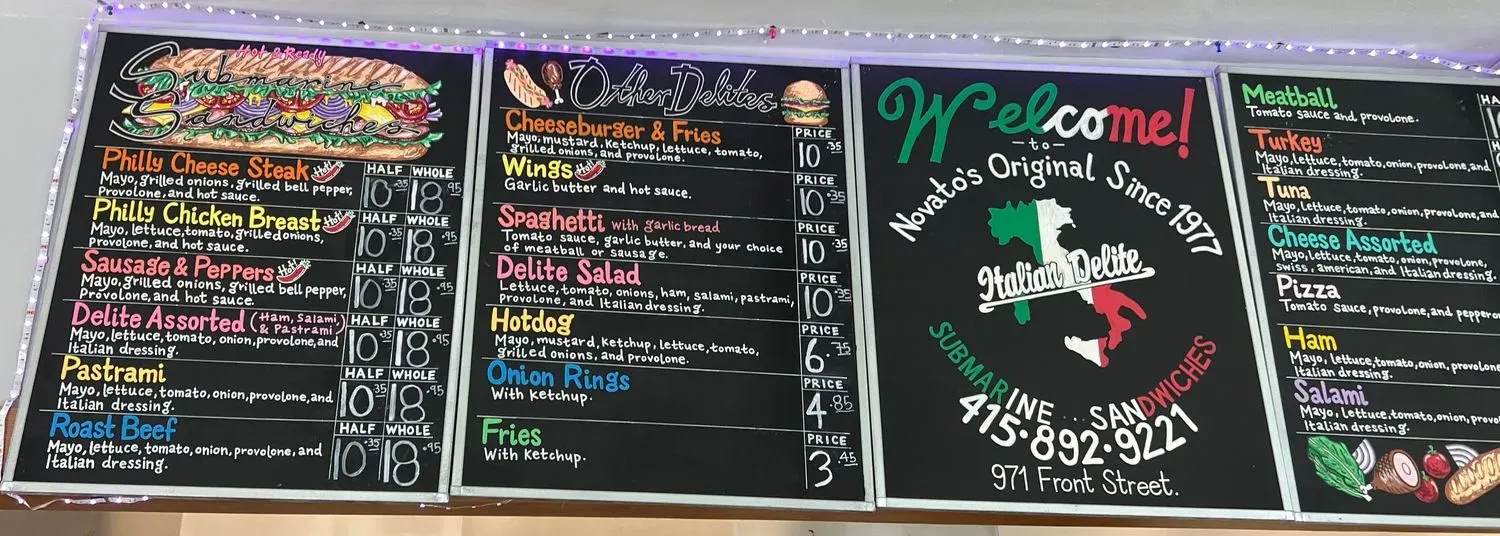 Hot & Ready
Submarine
Sandwiches
Philly Cheese Steak Hot!
Mayo, grilled onions, grilled bell pepper,
Provolone, and hot sauce.
HALF WHOLE
10.35 18.95
Philly Chicken Breast Hot!
Mayo, lettuce, tomato, grilled onions,
Provolone, and hot sauce.
HALF WHOLE
10.35 18.95
Sausage & Peppers Hot!
Mayo, grilled onions, grilled bell pepper,
Provolone, and hot sauce.
HALF WHOLE
10.35 18.95
Delite Assorted (Ham, Salami, & Pastrami)
Mayo, lettuce, tomato, onion, provolone, and
Italian dressing.
HALF WHOLE
10.35 18.95
Pastrami
Mayo, lettuce, tomato, onion, provolone, and
Italian dressing.
HALF WHOLE
10.35 18.95
Roast Beef
Mayo, lettuce, tomato, onion, provolone, and
Italian dressing.
HALF WHOLE
10.35 18.95
Other Delites
Cheeseburger & Fries
Mayo, mustard, Ketchup, lettuce, tomato,
grilled onions, and provolone.
PRICE
10.35
Wings Hot!
Garlic butter and hot sauce.
PRICE
10.35
Spaghetti with garlic bread
Tomato sauce, garlic butter, and your choice
of meatball or sausage.
PRICE
10.35
Delite Salad
Lettuce, tomato, onions, ham, salami, pastrami,
Provolone, and Italian dressing.
PRICE
10.35
Hotdog
Mayo, mustard, Ketchup, lettuce, tomato,
grilled onions, and provolone.
PRICE
6.75
Onion Rings
With Ketchup.
PRICE
4.85
Fries
With Ketchup.
PRICE
3.45
Welcome!
-to-
Novato's Original Since 1977
Italian Delite
SUBMARINE... SANDWICHES
415·892·9221
971 Front Street.
Meatball
Tomato sauce and provolone.
Turkey
Mayo, lettuce, tomato, onion, provolone, and
Italian dressing.
Tuna
Mayo, lettuce, tomato, onion, provolone, and
Italian dressing.
Cheese Assorted
Mayo, lettuce, tomato, onion, provolone,
swiss, american, and Italian dressing.
Pizza
Tomato sauce, provolone, and
Ham
Mayo, lettuce, tomato, onion, provolone
Italian dressing.
Salami
Mayo, lettuce, tomato, onion,
Italian dressing.